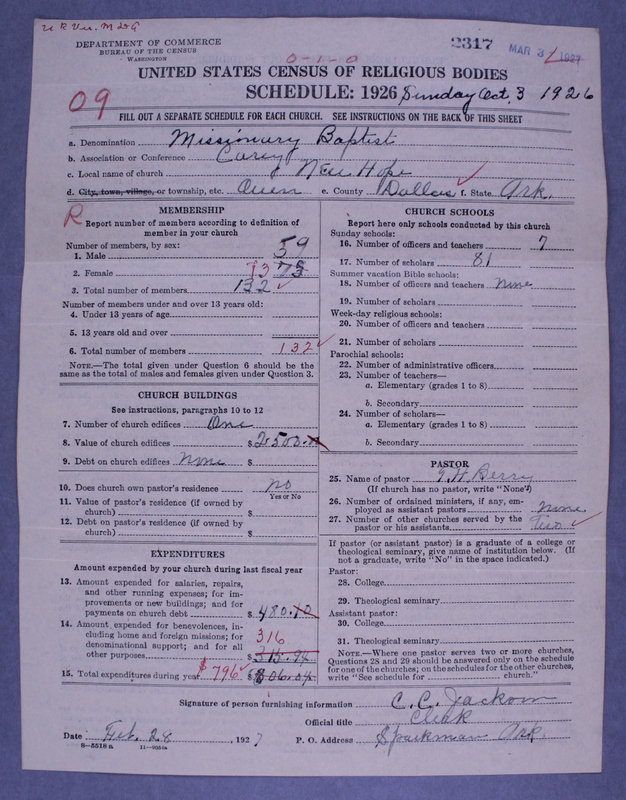 DEPARTMENT OF COMMERCE
BUREAU OF THE CENSUS
WASHINGTON
2317
MAR 3 1927
0-1-0
UNITED STATES CENSUS OF RELIGIOUS BODIES
SCHEDULE: 1926 Sunday Oct. 3 1926
09
FILL OUT A SEPARATE SCHEDULE FOR EACH CHURCH. SEE INSTRUCTIONS ON THE BACK OF THIS SHEET
a. Denomination Missionary Baptist
b. Association or Conference Carey
c. Local name of church New Hope
d. City, town, village, or township, etc. Owen e. County Dallas f. State Ark.
R
MEMBERSHIP
Report number of members according to definition of
member in your church
Number of members, by sex:
1. Male 59
2. Female 73 75
3. Total number of members 132
Number of members under and over 13 years old:
4. Under 13 years of age
5. 13 years old and over
6. Total number of members 132
NOTE.—The total given under Question 6 should be
same as the total of males and females given under Question 3.
CHURCH BUILDINGS
See instructions, paragraphs 10 to 12
7. Number of church edifices One
8. Value of church edifices $2500.00
9. Debt on church edifices None $
10. Does church own pastor's residence no
Yes or No
11. Value of pastor's residence (if owned by
church) $
12. Debt on pastor's residence (if owned by
church) $
EXPENDITURES
Amount expended by your church during last fiscal year
13. Amount expended for salaries, repairs,
and other running expenses; for im-
provements or new buildings; and for
payments on church debt $480.10
14. Amount expended for benevolences, in-
cluding home and foreign missions; for
denominational support; and for all
other purposes 316 $315.94
15. Total expenditures during year $796 $806.04
CHURCH SCHOOLS
Report here only schools conducted by this church
Sunday schools:
16. Number of officers and teachers 7
17. Number of scholars 81
Summer vacation Bible schools:
18. Number of officers and teachers None
19. Number of scholars
Week-day religious schools:
20. Number of officers and teachers
21. Number of scholars
Parochial schools:
22. Number of administrative officers
23. Number of teachers—
a. Elementary (grades 1 to 8)
b. Secondary
24. Number of scholars—
a. Elementary (grades 1 to 8)
b. Secondary
PASTOR
25. Name of pastor H. Berry
(If church has no pastor, write "None")
26. Number of ordained ministers, if any, em-
ployed as assistant pastors None
27. Number of other churches served by the
pastor or his assistants Two
If pastor (or assistant pastor) is a graduate of a college or
theological seminary, give name of institution below. (If
not a graduate, write "No" in the space indicated.)
Pastor:
28. College
29. Theological seminary
Assistant pastor:
30. College
31. Theological seminary
NOTE.—Where one pastor serves two or more churches,
Questions 28 and 29 should be answered only on the schedule
for one of the churches; on the schedules for the other churches,
write "See schedule for church."
Signature of person furnishing information C. C. Jackson
Official title Clerk
Date Feb. 28, 1927 P. O. Address Sparkman Ark.
8—5518 a 11—9054a